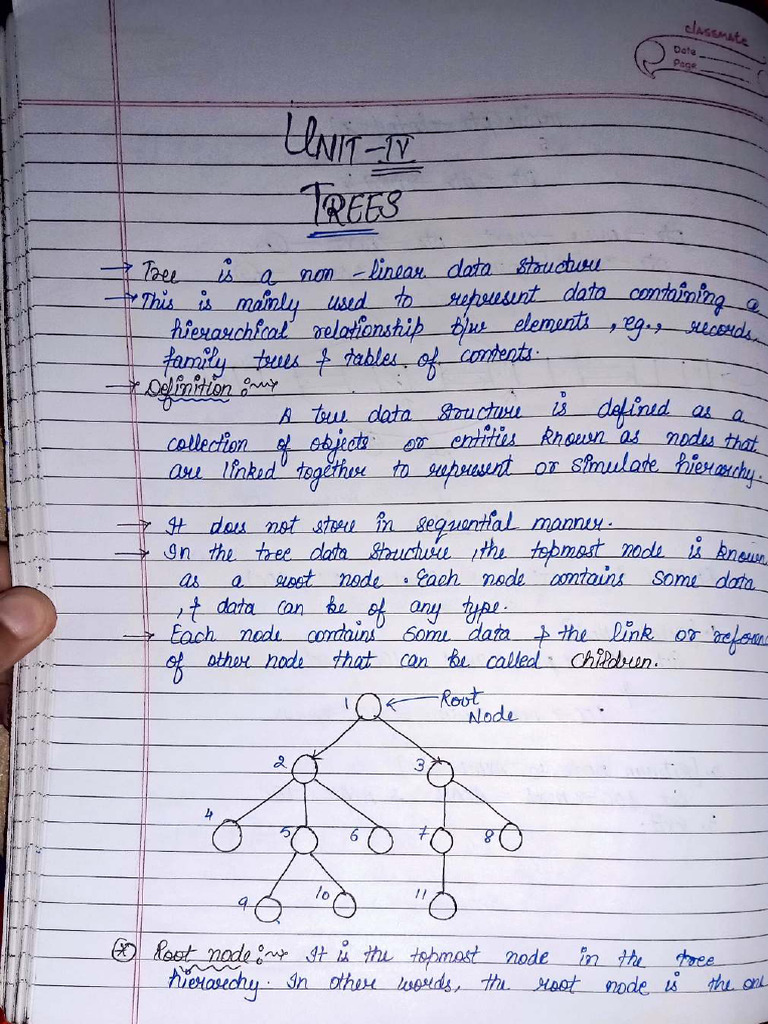 classmate
Date
Page
UNIT-IV
TREES
→ Tree is a non-linear data structure
→ This is mainly used to represent data containing a
hierarchical relationship b/w elements, eg., records,
family trees & tables of contents.
→ Definition :~
A tree data structure is defined as a
collection of objects or entities known as nodes that
are linked together to represent or simulate hierarchy.
→ It does not store in sequential manner.
→ In the tree data structure, the topmost node is known
as a root node. Each node contains some data
, & data can be of any type.
→ Each node contains some data & the link or referen
of other node that can be called, children.
1 ← Root
Node
2 3
4 5 6 7 8
9 10 11
* Root node :~ It is the topmost node in the tree
hierarchy. In other words, the root node is the one